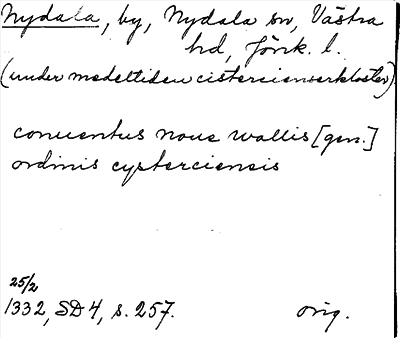 Nydala, by, Nydala sn, Västra
hd, Jönk. l.
(under medeltiden cistercienserkloster)
conuentus noue wallis [gen.]
ordinis cysterciensis
25/2
1332, SD 4, s. 257. orig.